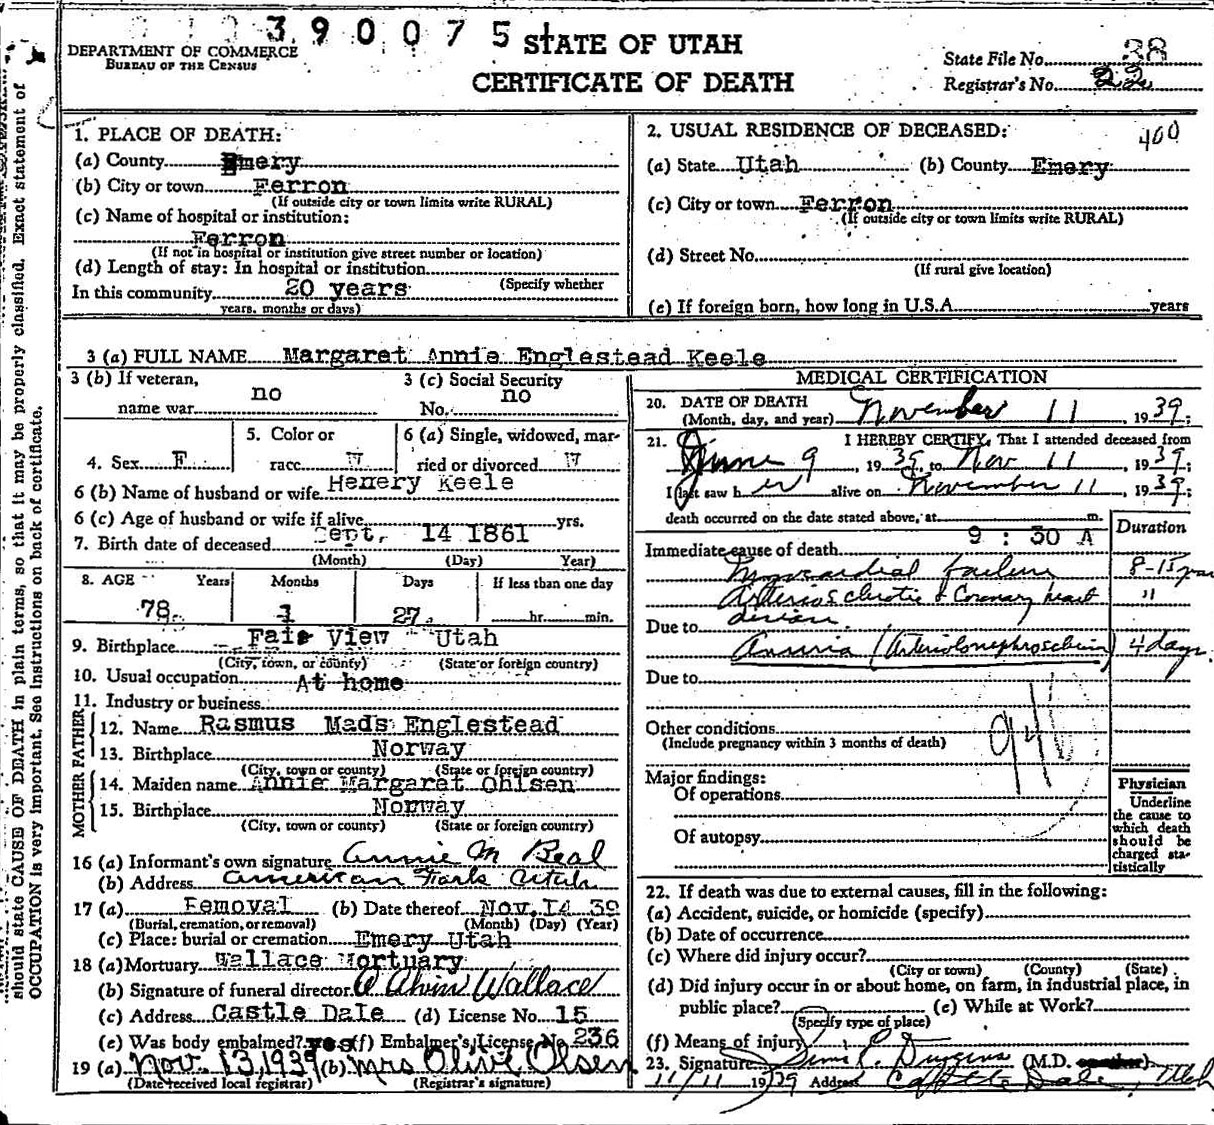 390075
STATE OF UTAH
CERTIFICATE OF DEATH
DEPARTMENT OF COMMERCE
BUREAU OF THE CENSUS
State File No. 38
Registrar's No. 22
400
should state CAUSE OF DEATH in plain terms, so that it may be properly classified. Exact statement of
OCCUPATION is very important. See instructions on back of certificate.
1. PLACE OF DEATH:
(a) County Emery
(b) City or town Ferron
(If outside city or town limits write RURAL)
(c) Name of hospital or institution:
Ferron
(If not in hospital or institution give street number or location)
(d) Length of stay: In hospital or institution
(Specify whether
In this community 20 years
years, months or days)
2. USUAL RESIDENCE OF DECEASED:
(a) State Utah (b) County Emery
(c) City or town Ferron
(If outside city or town limits write RURAL)
(d) Street No.
(If rural give location)
(e) If foreign born, how long in U.S.A. years
3 (a) FULL NAME Margaret Annie Englestead Keele
3 (b) If veteran, name war no
3 (c) Social Security No. no
4. Sex F
5. Color or race W
6 (a) Single, widowed, married or divorced W
6 (b) Name of husband or wife Henery Keele
6 (c) Age of husband or wife if alive yrs.
7. Birth date of deceased Sept. 14 1861
(Month) (Day) Year)
8. AGE Years Months Days If less than one day
78 1 27 hr. min.
9. Birthplace Fair View Utah
(City, town, or county) (State or foreign country)
10. Usual occupation At home
11. Industry or business
FATHER
12. Name Rasmus Mads Englestead
13. Birthplace Norway
(City, town or county) (State or foreign country)
MOTHER
14. Maiden name Annie Margaret Ohlsen
15. Birthplace Norway
(City, town or county) (State or foreign country)
16 (a) Informant's own signature Annie M Beal
(b) Address American Fork Utah
17 (a) Removal (b) Date thereof Nov. 14 39
(Burial, cremation, or removal) (Month) (Day) (Year)
(c) Place: burial or cremation Emery Utah
18 (a) Mortuary Wallace Mortuary
(b) Signature of funeral director A Alvin Wallace
(c) Address Castle Dale (d) License No. 15
(e) Was body embalmed? yes (f) Embalmer's License No 236
19 (a) Nov. 13, 1939 (b) Mrs Olive Olsen
(Date received local registrar) (Registrar's signature)
MEDICAL CERTIFICATION
20. DATE OF DEATH
(Month, day, and year) November 11, 1939;
21. I HEREBY CERTIFY, That I attended deceased from
June 9, 1939, to Nov 11, 1939;
I last saw her alive on November 11, 1939;
death occurred on the date stated above, at m.
9 : 30 A
Duration
Immediate cause of death
Myocardial failure 8-15 years
Arteriosclerotic & Coronary heart "
Due to disease.
(Arteriolonephrosclerosis) 4 days
Due to
Other conditions
(Include pregnancy within 3 months of death)
94b
Major findings:
Of operations
Of autopsy
Physician
Underline
the cause to
which death
should be
charged sta-
tistically
22. If death was due to external causes, fill in the following:
(a) Accident, suicide, or homicide (specify)
(b) Date of occurrence
(c) Where did injury occur?
(City or town) (County) (State)
(d) Did injury occur in or about home, on farm, in industrial place, in
public place? (e) While at Work?
(Specify type of place)
(f) Means of injury
23. Signature (M.D.
11/11 1939 Address Castle Dale, Utah